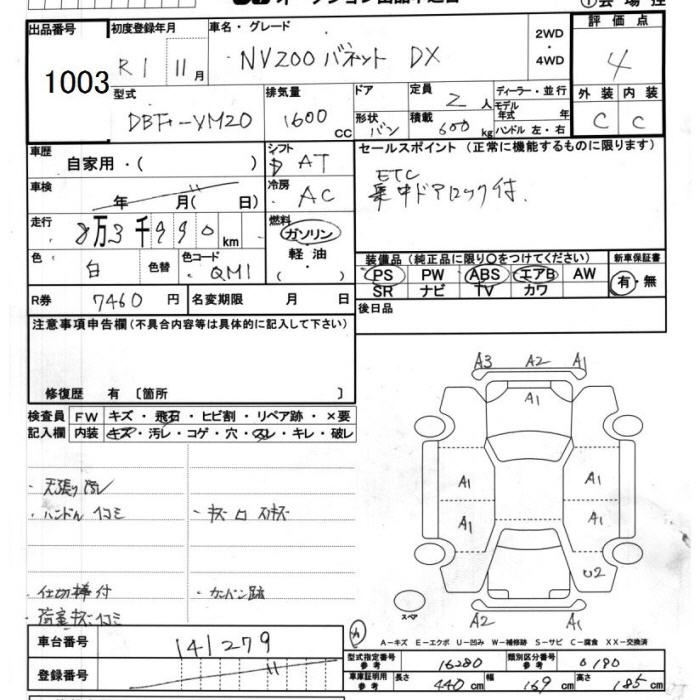 出品番号 初度登録年月 車名・グレード 2WD・4WD 評価点
1003 R1 11月 NV200 バネット DX 4
型式 排気量 ドア 定員 ディーラー・並行 外装 内装
DBF-VM20 1600 CC 形状 バン 2人 モデル年式 年 C C
積載 600 kg ハンドル 左・右
車歴 シフト セールスポイント (正常に機能するものに限ります)
自家用・( ) AT ETC
車検 冷房 集中ドアロック付.
年 月( 日) AC
走行 燃料
8万3千990km ガソリン
色 色替 色コード 軽油 装備品 (純正品に限り○をつけてください) 新車保証書
白 QM1 ・( ) PS PW ABS エアB AW 有・無
SR ナビ TV カワ
R券 7460円 名変期限 月 日 後日品
注意事項申告欄(不具合内容等は具体的に記入して下さい)
修復歴 有 〔箇所 〕
検査員 FW キズ・飛石・ヒビ割・リペア跡・×要
記入欄 内装 キズ・汚レ・コゲ・穴・スレ・キレ・破レ
A3 A2 A1
A1
A1 A1
A1 A1
U2
スペア
A2 A1
・天張り汚レ
・ハンドル
・仕切棒付 ・カンバン跡
A-キズ E-エクボ U-凹み W-補修跡 S-サビ C-腐食 XX-交換済
車台番号 141279
型式指定番号 参考 16280 類別区分番号 参考 0180
登録番号
車庫証明用 参考 長さ 440cm 幅 169cm 高さ 185cm